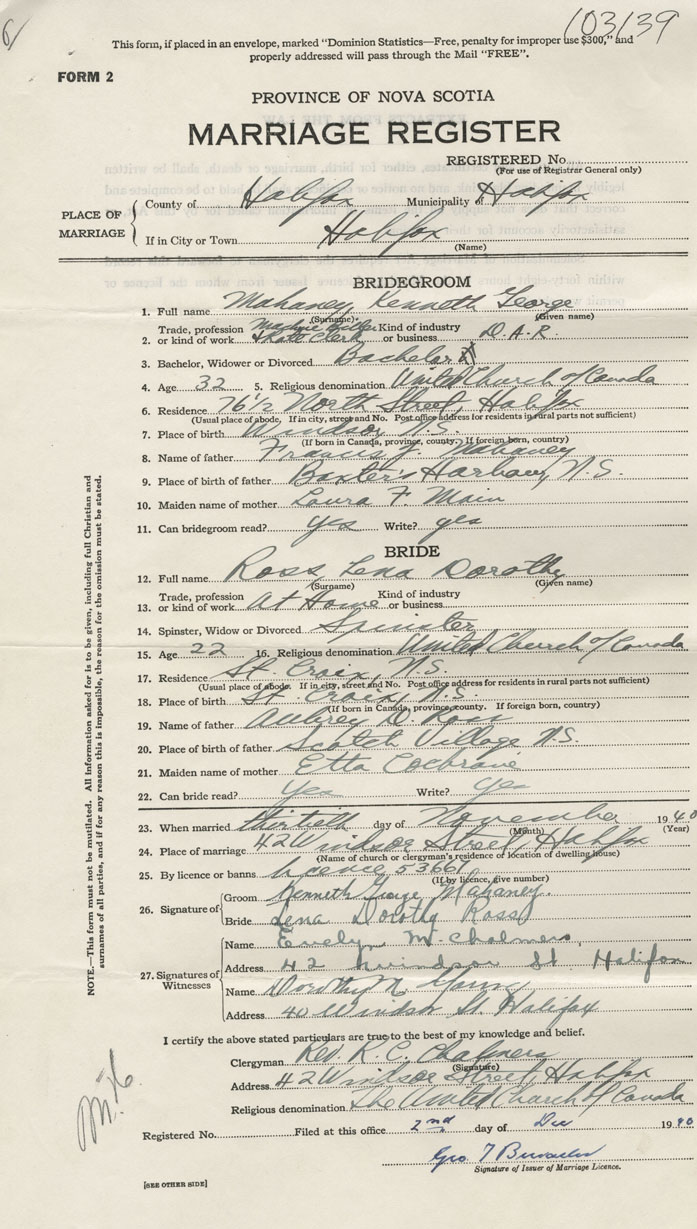 103/39
This form, if placed in an envelope, marked "Dominion Statistics—Free, penalty for improper use $300," and
properly addressed will pass through the Mail "FREE".
FORM 2
PROVINCE OF NOVA SCOTIA
MARRIAGE REGISTER
REGISTERED No.
(For use of Registrar General only)
PLACE OF MARRIAGE
County of Halifax Municipality of Halifax
If in City or Town Halifax
(Name)
BRIDEGROOM
1. Full name Mahaney Kenneth George
(Surname) (Given name)
Trade, profession Kind of industry
2. or kind of work Clerk or business D.A.R.
3. Bachelor, Widower or Divorced Bachelor
4. Age 32 5. Religious denomination United Church of Canada
6. Residence 76 1/2 North Street, Halifax
(Usual place of abode. If in city, street and No. Post office address for residents in rural parts not sufficient)
7. Place of birth Windsor, N.S.
(If born in Canada, province, county. If foreign born, country)
8. Name of father Francis J. Mahaney
9. Place of birth of father Baxter's Harbour, N.S.
10. Maiden name of mother Laura F. Main
11. Can bridegroom read? yes Write? yes
BRIDE
12. Full name Ross Lena Dorothy
(Surname) (Given name)
Trade, profession Kind of industry
13. or kind of work At Home or business
14. Spinster, Widow or Divorced Spinster
15. Age 22 16. Religious denomination United Church of Canada
17. Residence St. Croix, N.S.
(Usual place of abode. If in city, street and No. Post office address for residents in rural parts not sufficient)
18. Place of birth St. Croix, N.S.
(If born in Canada, province, county. If foreign born, country)
19. Name of father Aubrey D. Ross
20. Place of birth of father Scotch Village N.S.
21. Maiden name of mother Etta Cochrane
22. Can bride read? Yes Write? Yes
23. When married thirtieth day of November 1940
(Month) (Year)
24. Place of marriage 42 Windsor Street, Halifax
(Name of church or clergyman's residence or location of dwelling house)
25. By licence or banns licence 53661
(If by licence, give number)
26. Signature of
Groom Kenneth George Mahaney.
Bride Lena Dorothy Ross
27. Signatures of Witnesses
Name Evelyn M. Chalmers,
Address 42 Windsor St. Halifax
Name Dorothy M.
Address 40 Windsor St. Halifax
I certify the above stated particulars are true to the best of my knowledge and belief.
Clergyman Rev. R. C. Chalmers
(Signature)
Address 42 Windsor Street, Halifax
Religious denomination The United Church of Canada
Registered No. Filed at this office 2nd day of Dec 1940
Geo T
Signature of Issuer of Marriage Licence.
[SEE OTHER SIDE]
NOTE.—This form must not be mutilated. All information asked for is to be given, including full Christian and
surnames of all parties, and if for any reason this is impossible, the reason for the omission must be stated.